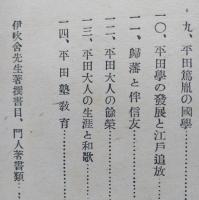 九、平田篤胤の國學………
一〇、平田學の發展と江戸追放………
一一、歸藩と伴信友………
一二、平田大人の餘榮………
一三、平田大人の生涯と和歌………
一四、平田塾敎育………
伊吹舍先生著撰書目、門人著書類……